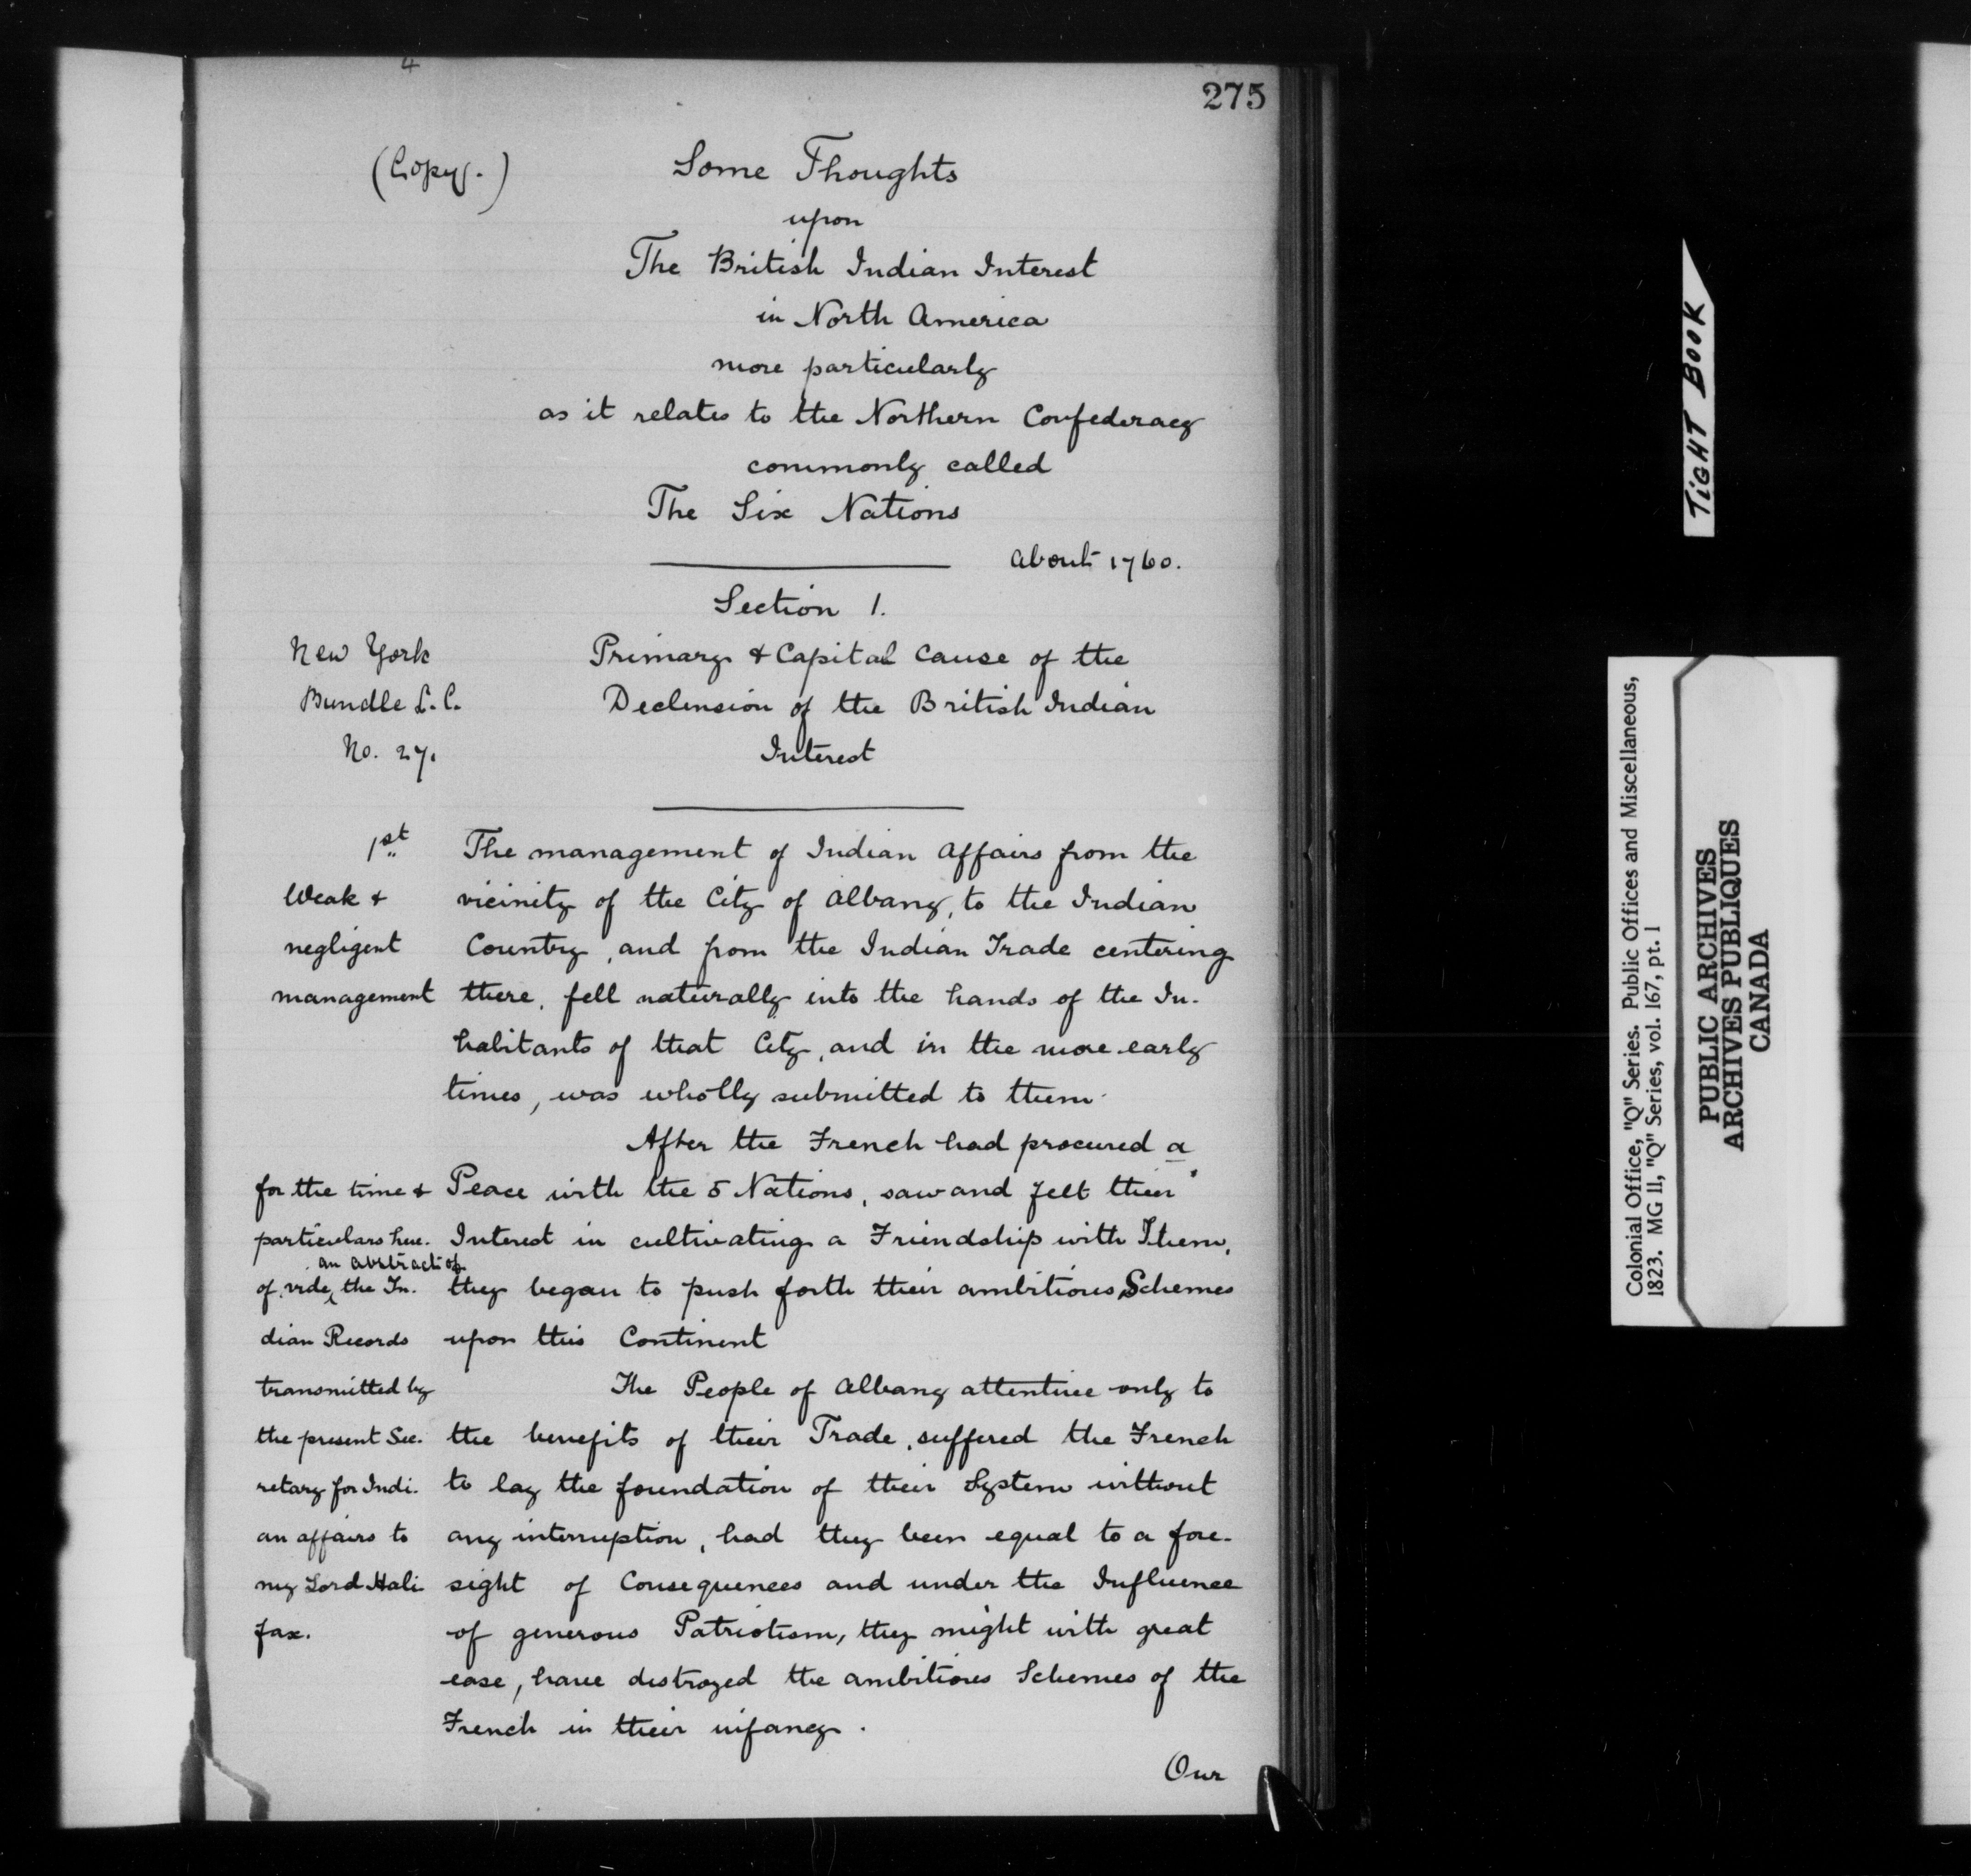 4
275
(Copy.)
Some Thoughts
upon
The British Indian Interest
in North America
more particularly
as it relates to the Northern Confederacy
commonly called
The Six Nations
About 1760.
Section 1.
New York
Bundle L. C.
No. 27.
Primary & Capital Cause of the
Declension of the British Indian
Interest
1st
Weak &
negligent
management
The management of Indian Affairs from the
vicinity of the City of Albany, to the Indian
Country, and from the Indian Trade centering
there, fell naturally into the hands of the In-
habitants of that City, and in the more early
times, was wholly submitted to them.
After the French had procured a
Peace with the 5 Nations, saw and felt their
Interest in cultivating a Friendship with Them,
they began to push forth their ambitious Schemes
upon this Continent
for the time &
particulars here-
of, vide, an abstract of
the In-
dian Records
transmitted by
the present Sec-
retary for Indi-
an affairs to
my Lord Hali
fax.
The People of Albany attentive only to
the benefits of their Trade, suffered the French
to lay the foundation of their System without
any interruption, had they been equal to a fore-
sight of Consequences and under the Influence
of generous Patriotism, they might with great
ease, have distroyed the ambitious Schemes of the
French in their infancy.
Our
TIGHT BOOK
Colonial Office, "Q" Series. Public Offices and Miscellaneous,
1823. MG 11, "Q" Series, vol. 167, pt. 1
PUBLIC ARCHIVES
ARCHIVES PUBLIQUES
CANADA